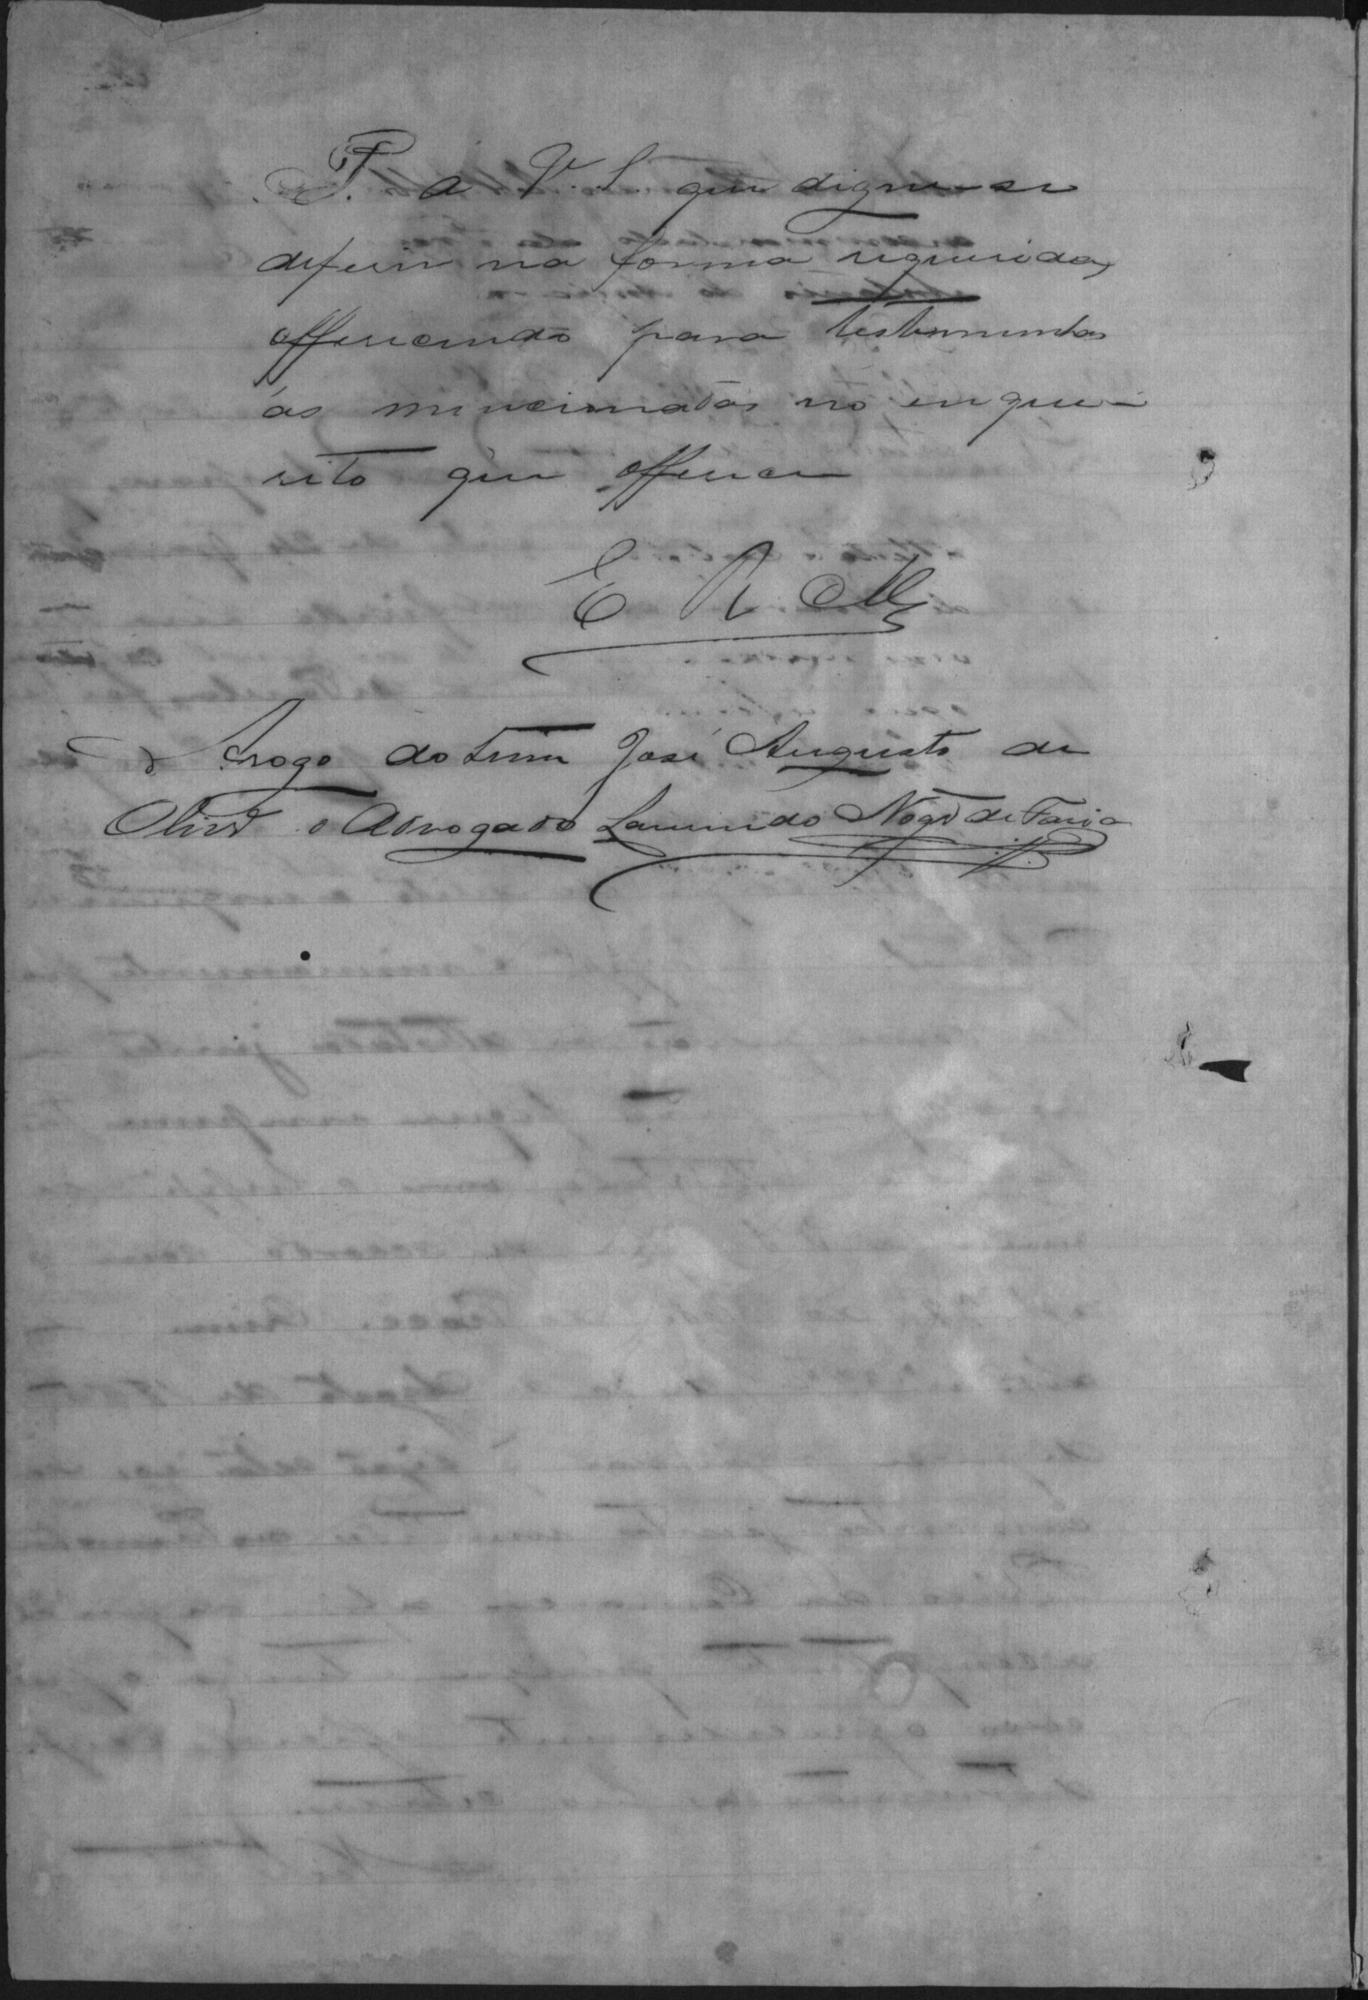 P. a V. S. que digne-se
deferir na forma requerida,
offerecendo para testemunhas
ás mencionadas no enque-
rito que offerece
E R M
Arogo do Tenn José Augusto de
Olivra o Advogado Nogra de Faria